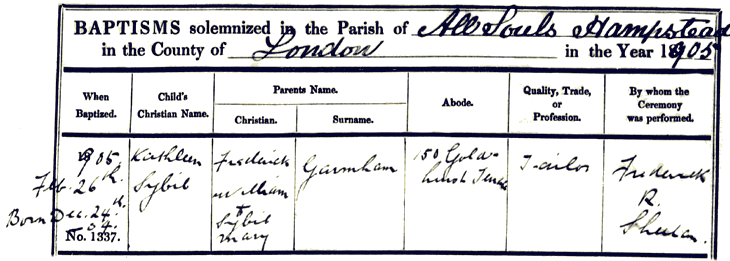 BAPTISMS solemnized in the Parish of All Souls Hampstead
in the County of London in the Year 1905
When Baptized.
Child's Christian Name.
Parents Name.
Christian.
Surname.
Abode.
Quality, Trade, or Profession.
By whom the Ceremony was performed.
1905.
Feb. 26th
Born Dec. 24th
04.
No. 1337.
Kathleen
Sybil
Frederick
William
+
Sybil
Mary
Garnham
150 Gold-
hurst
Tailor
Frederick
R.